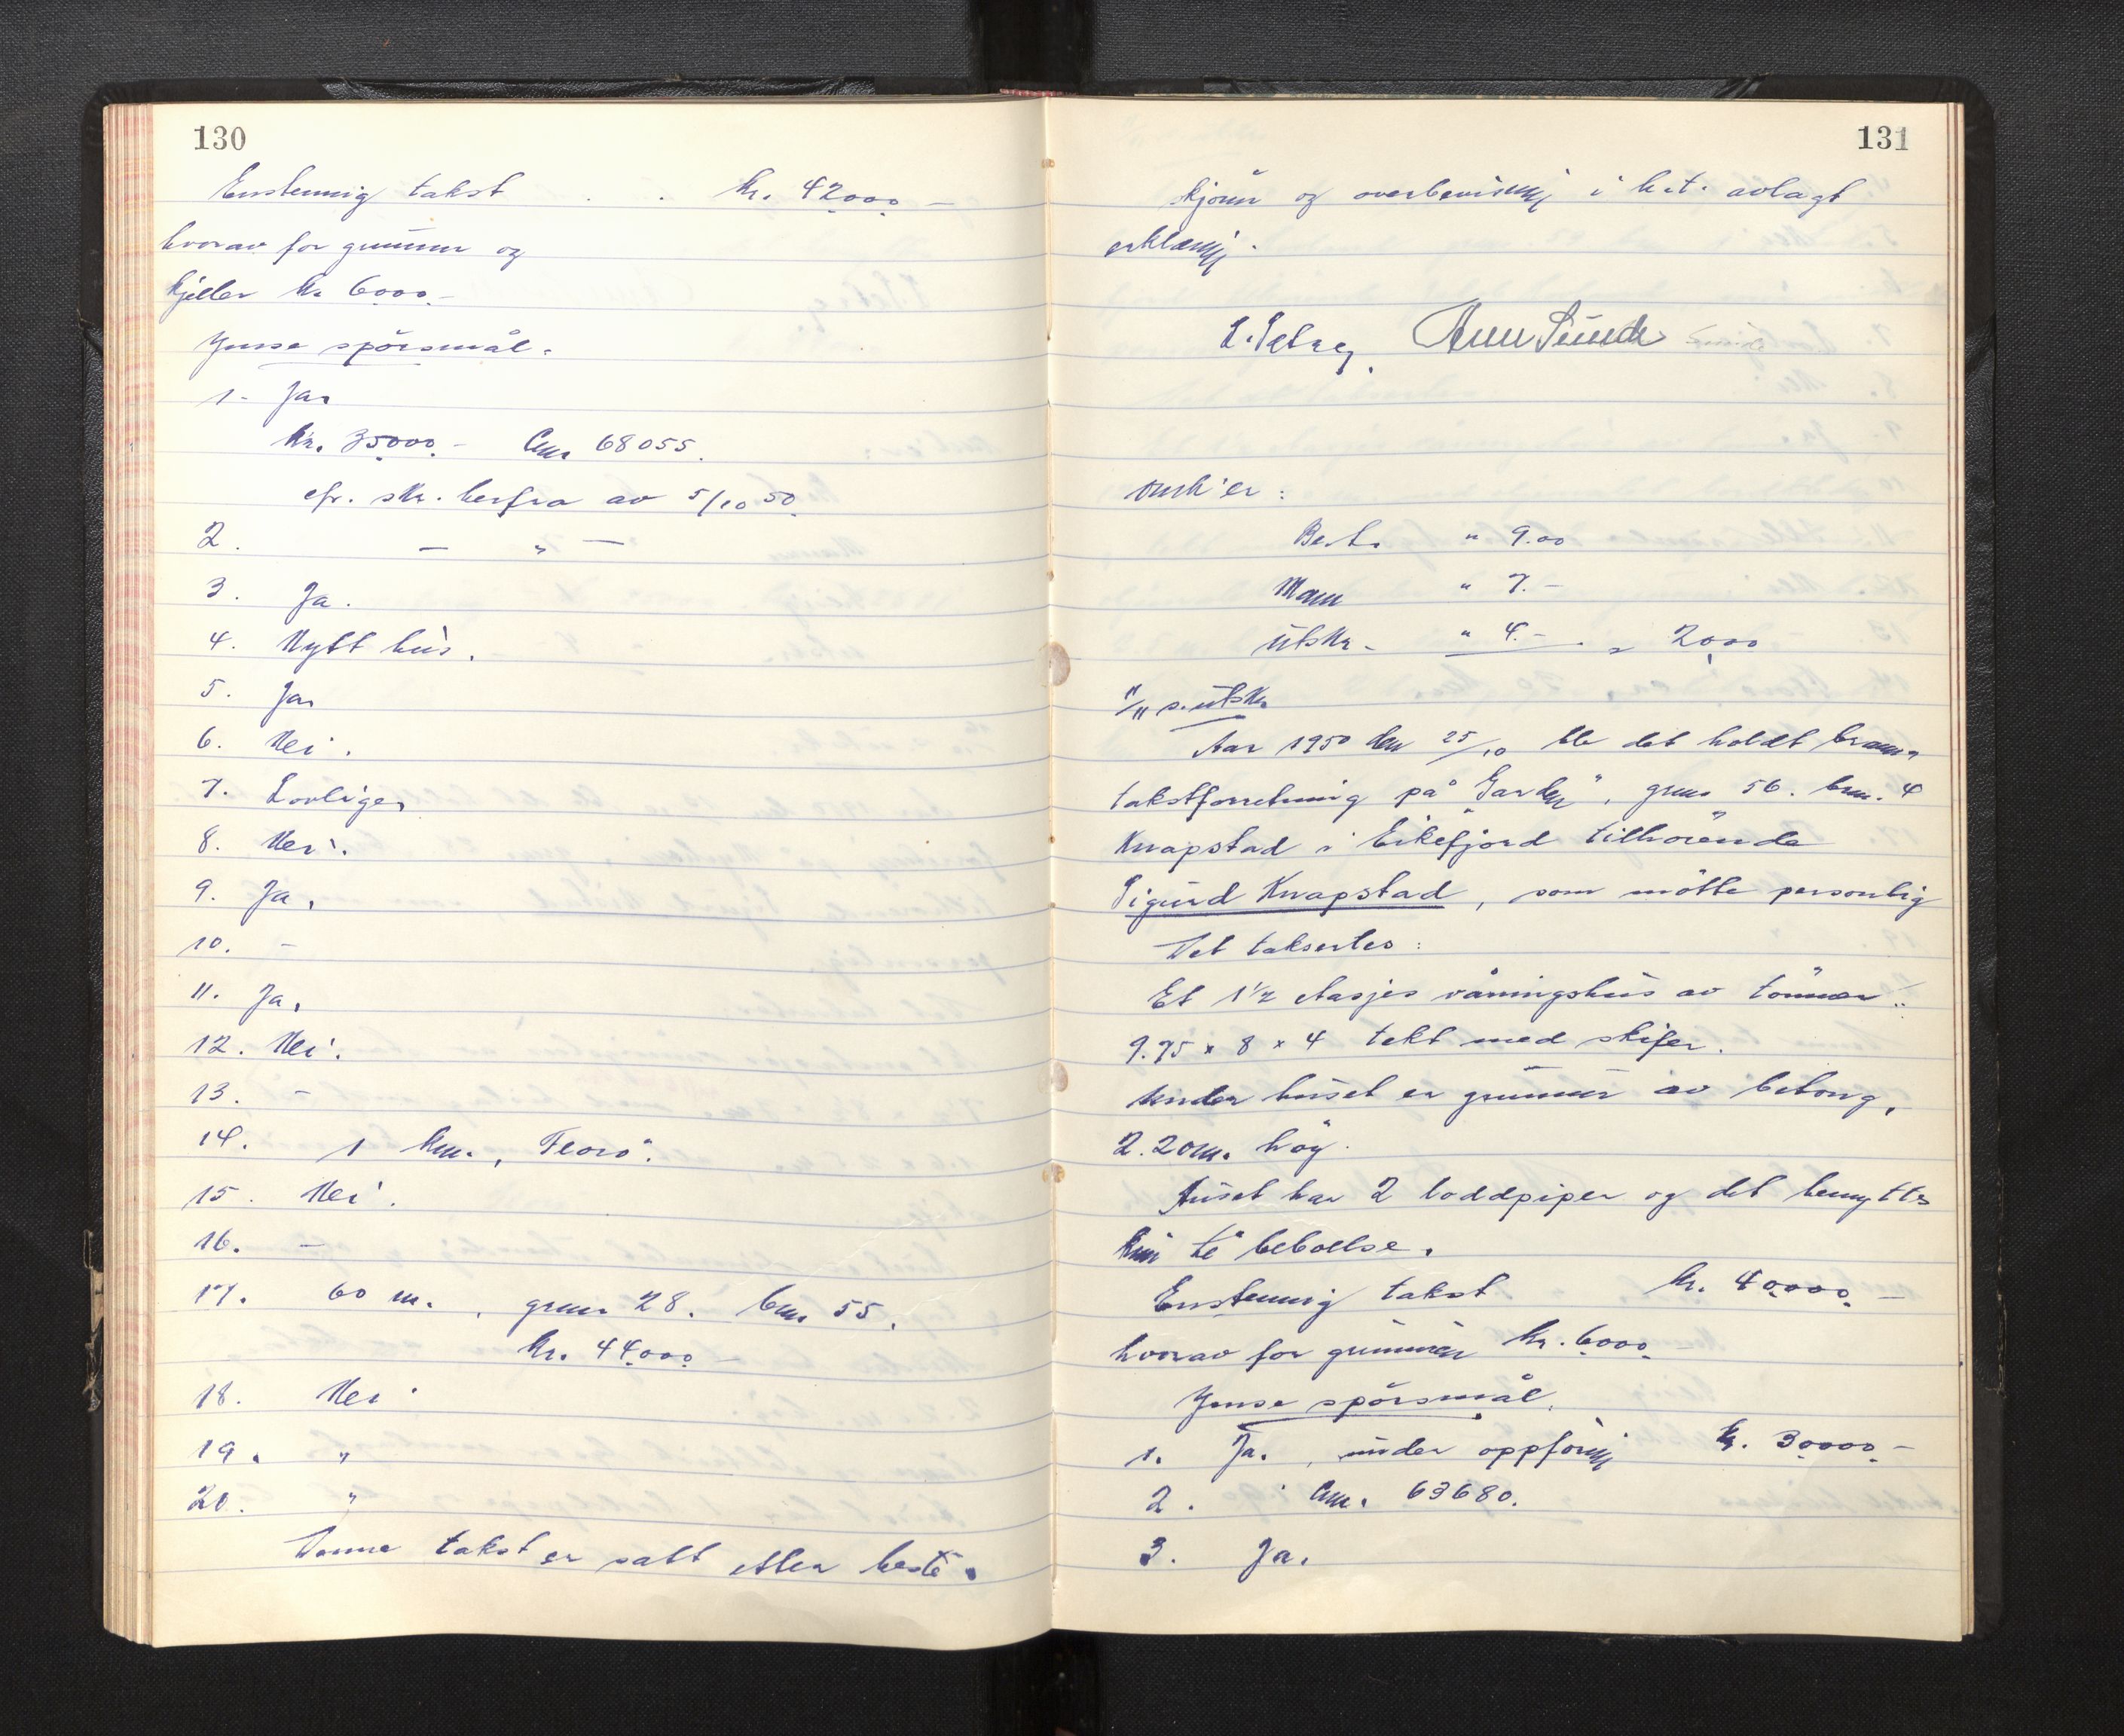 130
Enstemmig takst . . kr. 42000.-
hvorav for grunnmur og
kjeller kr 6000.-
Ymse spörsmål.
1. Ja.
kr. 35000.- Anr. 68055.
cfr. skr. herfra av 5/10 50.
2. — " —
3. Ja.
4. Nytt hus.
5. Ja.
6. Nei.
7. Lovlige.
8. Nei.
9. Ja.
10. -
11. Ja.
12. Nei.
13. -
14. 1 km., Florö.
15. Nei.
16. -
17. 60 m., gnr. 28. bnr 55.
kr. 44000.-
18. Nei.
19. "
20. "
Denne takst er satt etter beste
131
skjönn og overbevisning i h.t. avlagt
erklæring.
Sunde
omk'er:
" 9.00
Mann " 7.-
Utskr. " 4.- . = 2000
s. utskr.
Aar 1950 den 25/10 ble det holdt brann-
takstforretning på "Garden", gnr. 56. bnr. 4
Knapstad i Eikefjord tilhörende
Sigurd Knapstad, som mötte personlig
Det taksertes:
Et 1½ etasjes våningshus av tömmer..
9.75 x 8 x 4 tekt med skifer.
Under huset er grunnmur av betong,
2.20 m. höy.
Huset har 2 loddpiper og det benyttes
kun til beboelse.
Enstemmig takst kr. 40000.-
hvorav for grunnmur kr. 6000.
Ymse spörsmål.
1. Ja., under oppföring kr. 30000.-
2. Anr. 63680.
3. Ja.